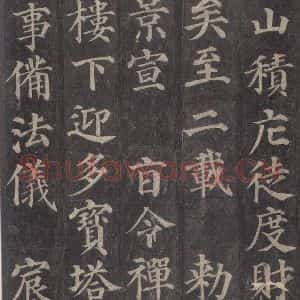 山積庀徒度財
矣至二載 勑
景宣 旨令禪
樓下迎多寶塔
事備法儀 宸
Shufawang.cn